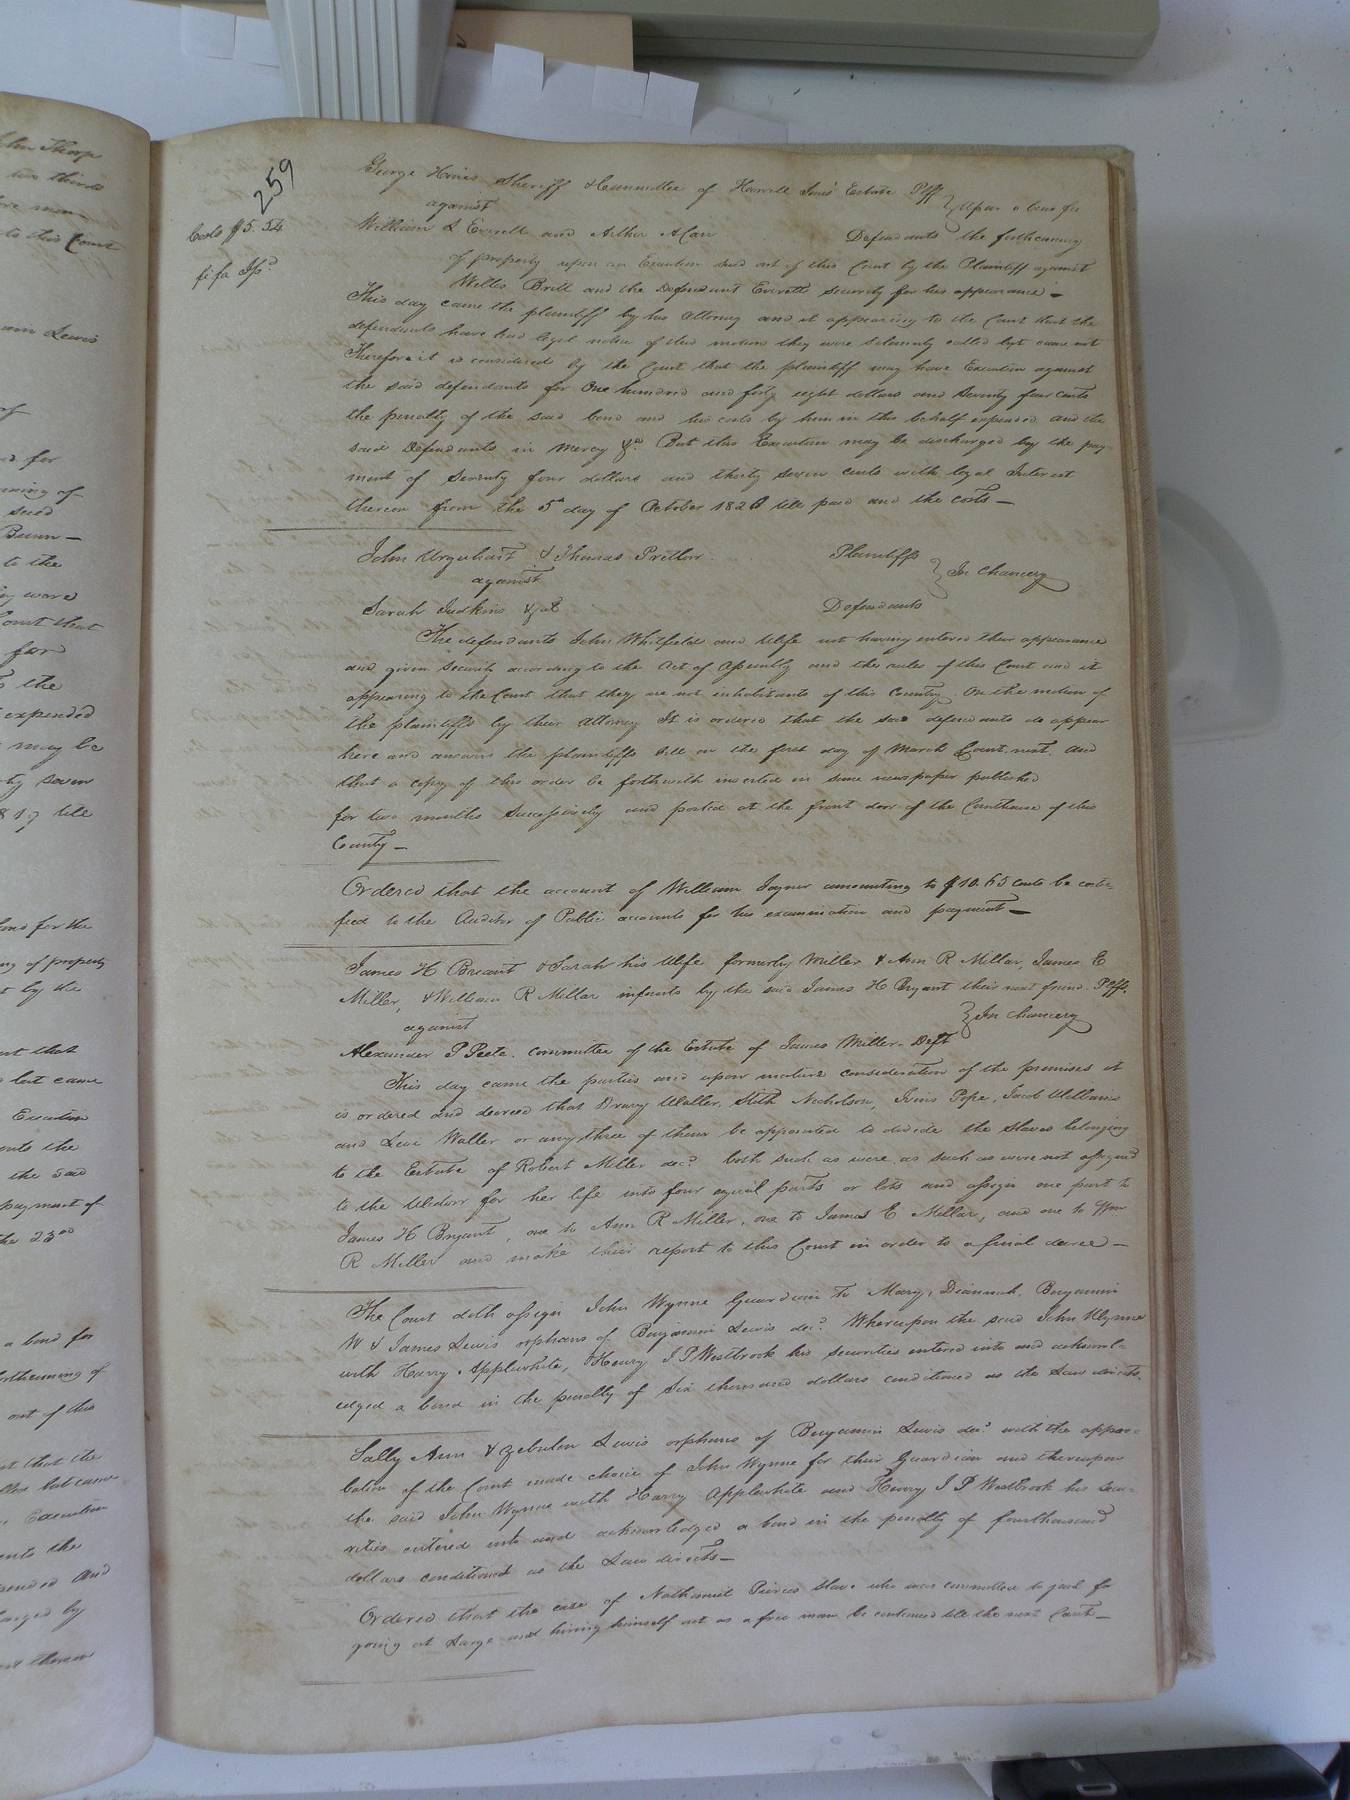 259
George Hines Sheriff & Committee of Harwell Ivins Estate Plff
against } Upon a bond for
William L Everett and Arther A Carr Defendants the forthcoming
Costs $5.54
fi fa Isd
of property upon an Execution sued out of this Court by the Plaintiff against
Willis Britt and the Defendant Everett security for his appearance —
This day came the plaintiff by his Attorney and it appearing to the Court that the
defendants have had legal notice of this motion they were solemnly called but came not
Therefore it is considered by the Court that the plaintiff may have Execution against
the said defendants for One hundred and forty eight dollars and Seventy four cents
the penalty of the said bond and his costs by him in this behalf expended and the
said Defendants in Mercy &c. But this Execution may be discharged by the pay
ment of Seventy four dollars and thirty seven cents with legal Interest
thereon from the 5th day of October 1826 till paid and the costs —
John Urquhart & Thomas Pretlow Plaintiffs
against } In Chancery
Sarah Judkins & al Defendants
The defendants John Whitfield and Wife not having entered their appearance
and given security according to the Act of Assembly and the rules of this Court and it
appearing to the Court that they are not inhabitants of this Country. On the motion of
the plaintiffs by their Attorney It is ordered that the said defendants do appear
here and answer the plaintiffs Bill on the first day of March Court next and
that a copy of this order be forthwith inserted in some newspaper published
for two months Successively and posted at the front door of the Courthouse of this
County —
Ordered that the account of William Joyner amounting to $10.65 cents be certi-
fied to the Auditor of Public accounts for his examination and payment —
James H Breant & Sarah his Wife formerly Miller & Ann R Millar, James E
Miller, & William R Millar infants by the said James H Bryant their next friend. Plffs.
against } In Chancery
Alexander P Peete. Committee of the Estate of James Miller. Deft
This day came the parties and upon mature consideration of the premises it
is ordered and decreed that Drury Waller, Stith Nicholson, Ivins Pope, Jacob Williams
and Levi Waller or any three of them be appointed to divide the Slaves belonging
to the Estate of Robert Miller decd. both such as were as such as were not assigned
to the Widow for her life into four equal parts or lots and assign one part to
James H Bryant, one to Ann R Miller, one to James E Millar, and one to Wm
R Miller and make their report to this Court in order to a final decree —
The Court doth assign John Wynne Guardian to Mary, Diannah, Benjamin
W & James Lewis orphans of Benjamin Lewis decd. Whereupon the said John Wynne
with Harry Applewhite, & Henry J P Westbrook his securities entered into and acknowl-
edged a bond in the penalty of Six thousand dollars conditioned as the Law directs.
Sally Ann & Zebulon Lewis orphans of Benjamin Lewis decd. with the appro-
bation of the Court made choice of John Wynne for their Guardian and thereupon
the said John Wynne with Harry Applewhite and Henry J P Westbrook his secu-
rities entered into and acknowledged a bond in the penalty of four thousand
dollars conditioned as the Law directs —
Ordered that the case of Nathaniel Pierces Slave who was committed to jail for
going at Large and hiring himself out as a free man be continued till the next Court —